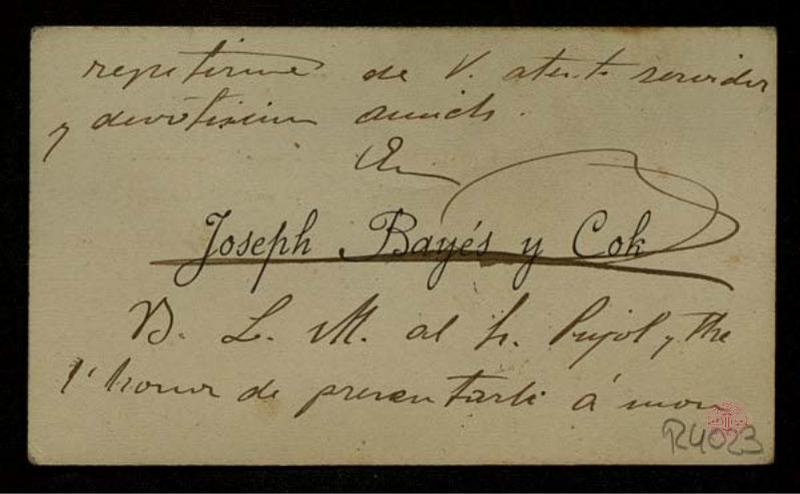 repetirme de V. atent servidor
y devotissim amich.
Joseph Bayés y Cok
B. L. M. al Sr. Pujol y the
l' honor de presentarli á mon
R4023